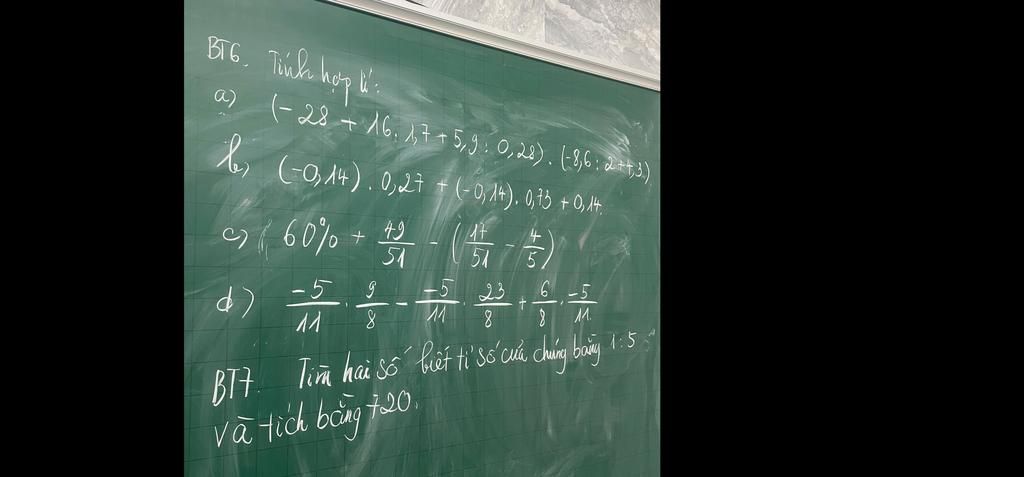 BT6. Tính hợp lí:
a) (-28 + 16 : 1,7 + 5,9 : 0,28) . (-8,6 : 2 + 4,3)
b) (-0,14) . 0,27 + (-0,14) . 0,73 + 0,14.
c) 60% + 49/51 - (17/51 - 4/5)
d) -5/11 . 9/8 - -5/11 . 23/8 + 6/8 . -5/11
BT7. Tìm hai số biết tỉ số của chúng bằng 1 : 5
và tích bằng 720.